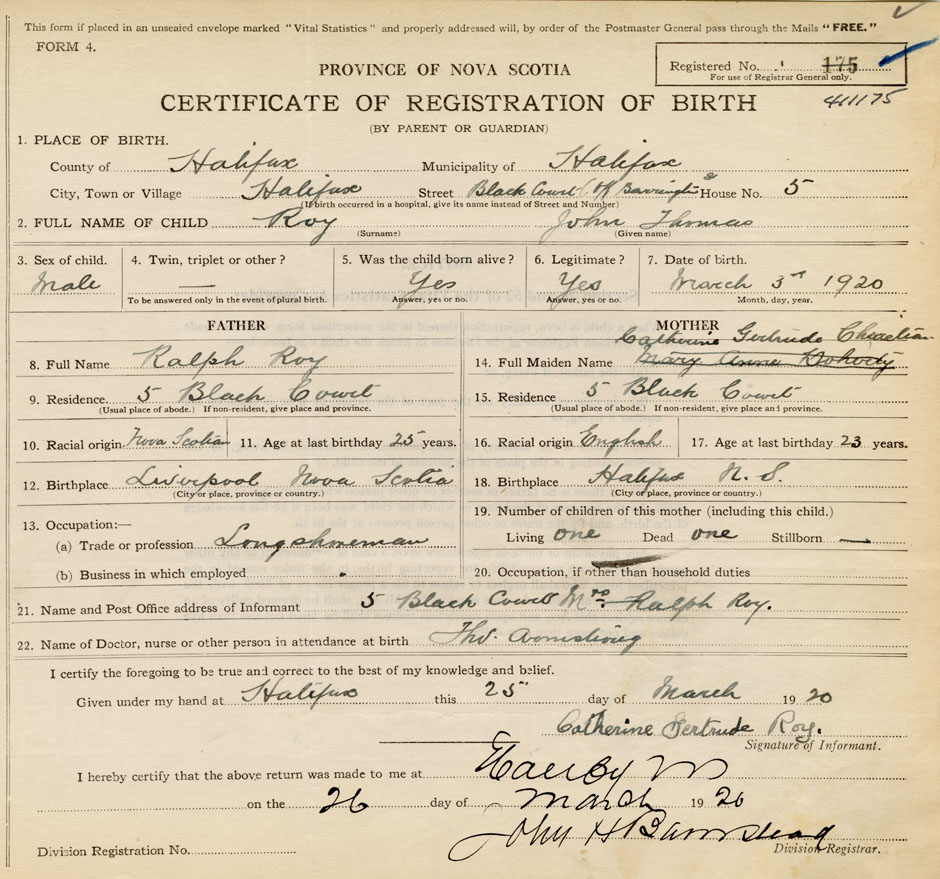 This form if placed in an unsealed envelope marked "Vital Statistics" and properly addressed will, by order of the Postmaster General pass through the Mails "FREE."
FORM 4.
Registered No. 175
For use of Registrar General only.
411175
PROVINCE OF NOVA SCOTIA
CERTIFICATE OF REGISTRATION OF BIRTH
(BY PARENT OR GUARDIAN)
1. PLACE OF BIRTH.
County of Halifax Municipality of Halifax
City, Town or Village Halifax Street Black Court (off Barrington St House No. 5
(If birth occurred in a hospital, give its name instead of Street and Number)
2. FULL NAME OF CHILD Roy John Thomas
(Surname) (Given name)
3. Sex of child. 4. Twin, triplet or other? 5. Was the child born alive? 6. Legitimate? 7. Date of birth.
Male — Yes Yes March 3rd 1920
To be answered only in the event of plural birth. Answer, yes or no. Answer, yes or no. Month, day, year.
FATHER
8. Full Name Ralph Roy
9. Residence. 5 Black Court
(Usual place of abode.) If non-resident, give place and province.
10. Racial origin Nova Scotian 11. Age at last birthday 25 years.
12. Birthplace Liverpool Nova Scotia
(City or place, province or country.)
13. Occupation:—
(a) Trade or profession Longshoreman
(b) Business in which employed
MOTHER
Catherine Gertrude Christian
14. Full Maiden Name Mary Anne Doherty
15. Residence 5 Black Court
(Usual place of abode.) If non-resident, give place and province.
16. Racial origin English 17. Age at last birthday 23 years.
18. Birthplace Halifax N. S.
(City or place, province or country.)
19. Number of children of this mother (including this child.)
Living one Dead one Stillborn —
20. Occupation, if other than household duties
21. Name and Post Office address of Informant 5 Black Court Mrs Ralph Roy.
22. Name of Doctor, nurse or other person in attendance at birth Armstrong
I certify the foregoing to be true and correct to the best of my knowledge and belief.
Given under my hand at Halifax this 25 day of March 1920
Catherine Gertrude Roy.
Signature of Informant.
I hereby certify that the above return was made to me at
on the 26 day of March 1920
John H Barnstead
Division Registration No. Division Registrar.